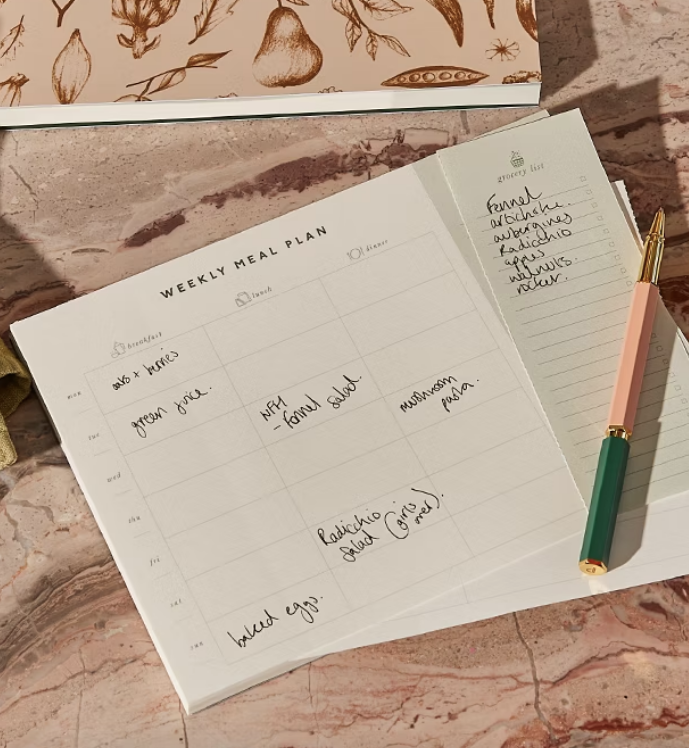 WEEKLY MEAL PLAN
breakfast
lunch
dinner
mon
oats + berries
tue
green juice.
WFH
- Fennel Salad.
mushroom
pasta.
wed
thu
fri
Radicchio
Salad (girls
over).
sat
sun
baked eggs.
grocery list
Fennel
artichoke.
aubergines
Radicchio
apples
walnuts.
rocket.